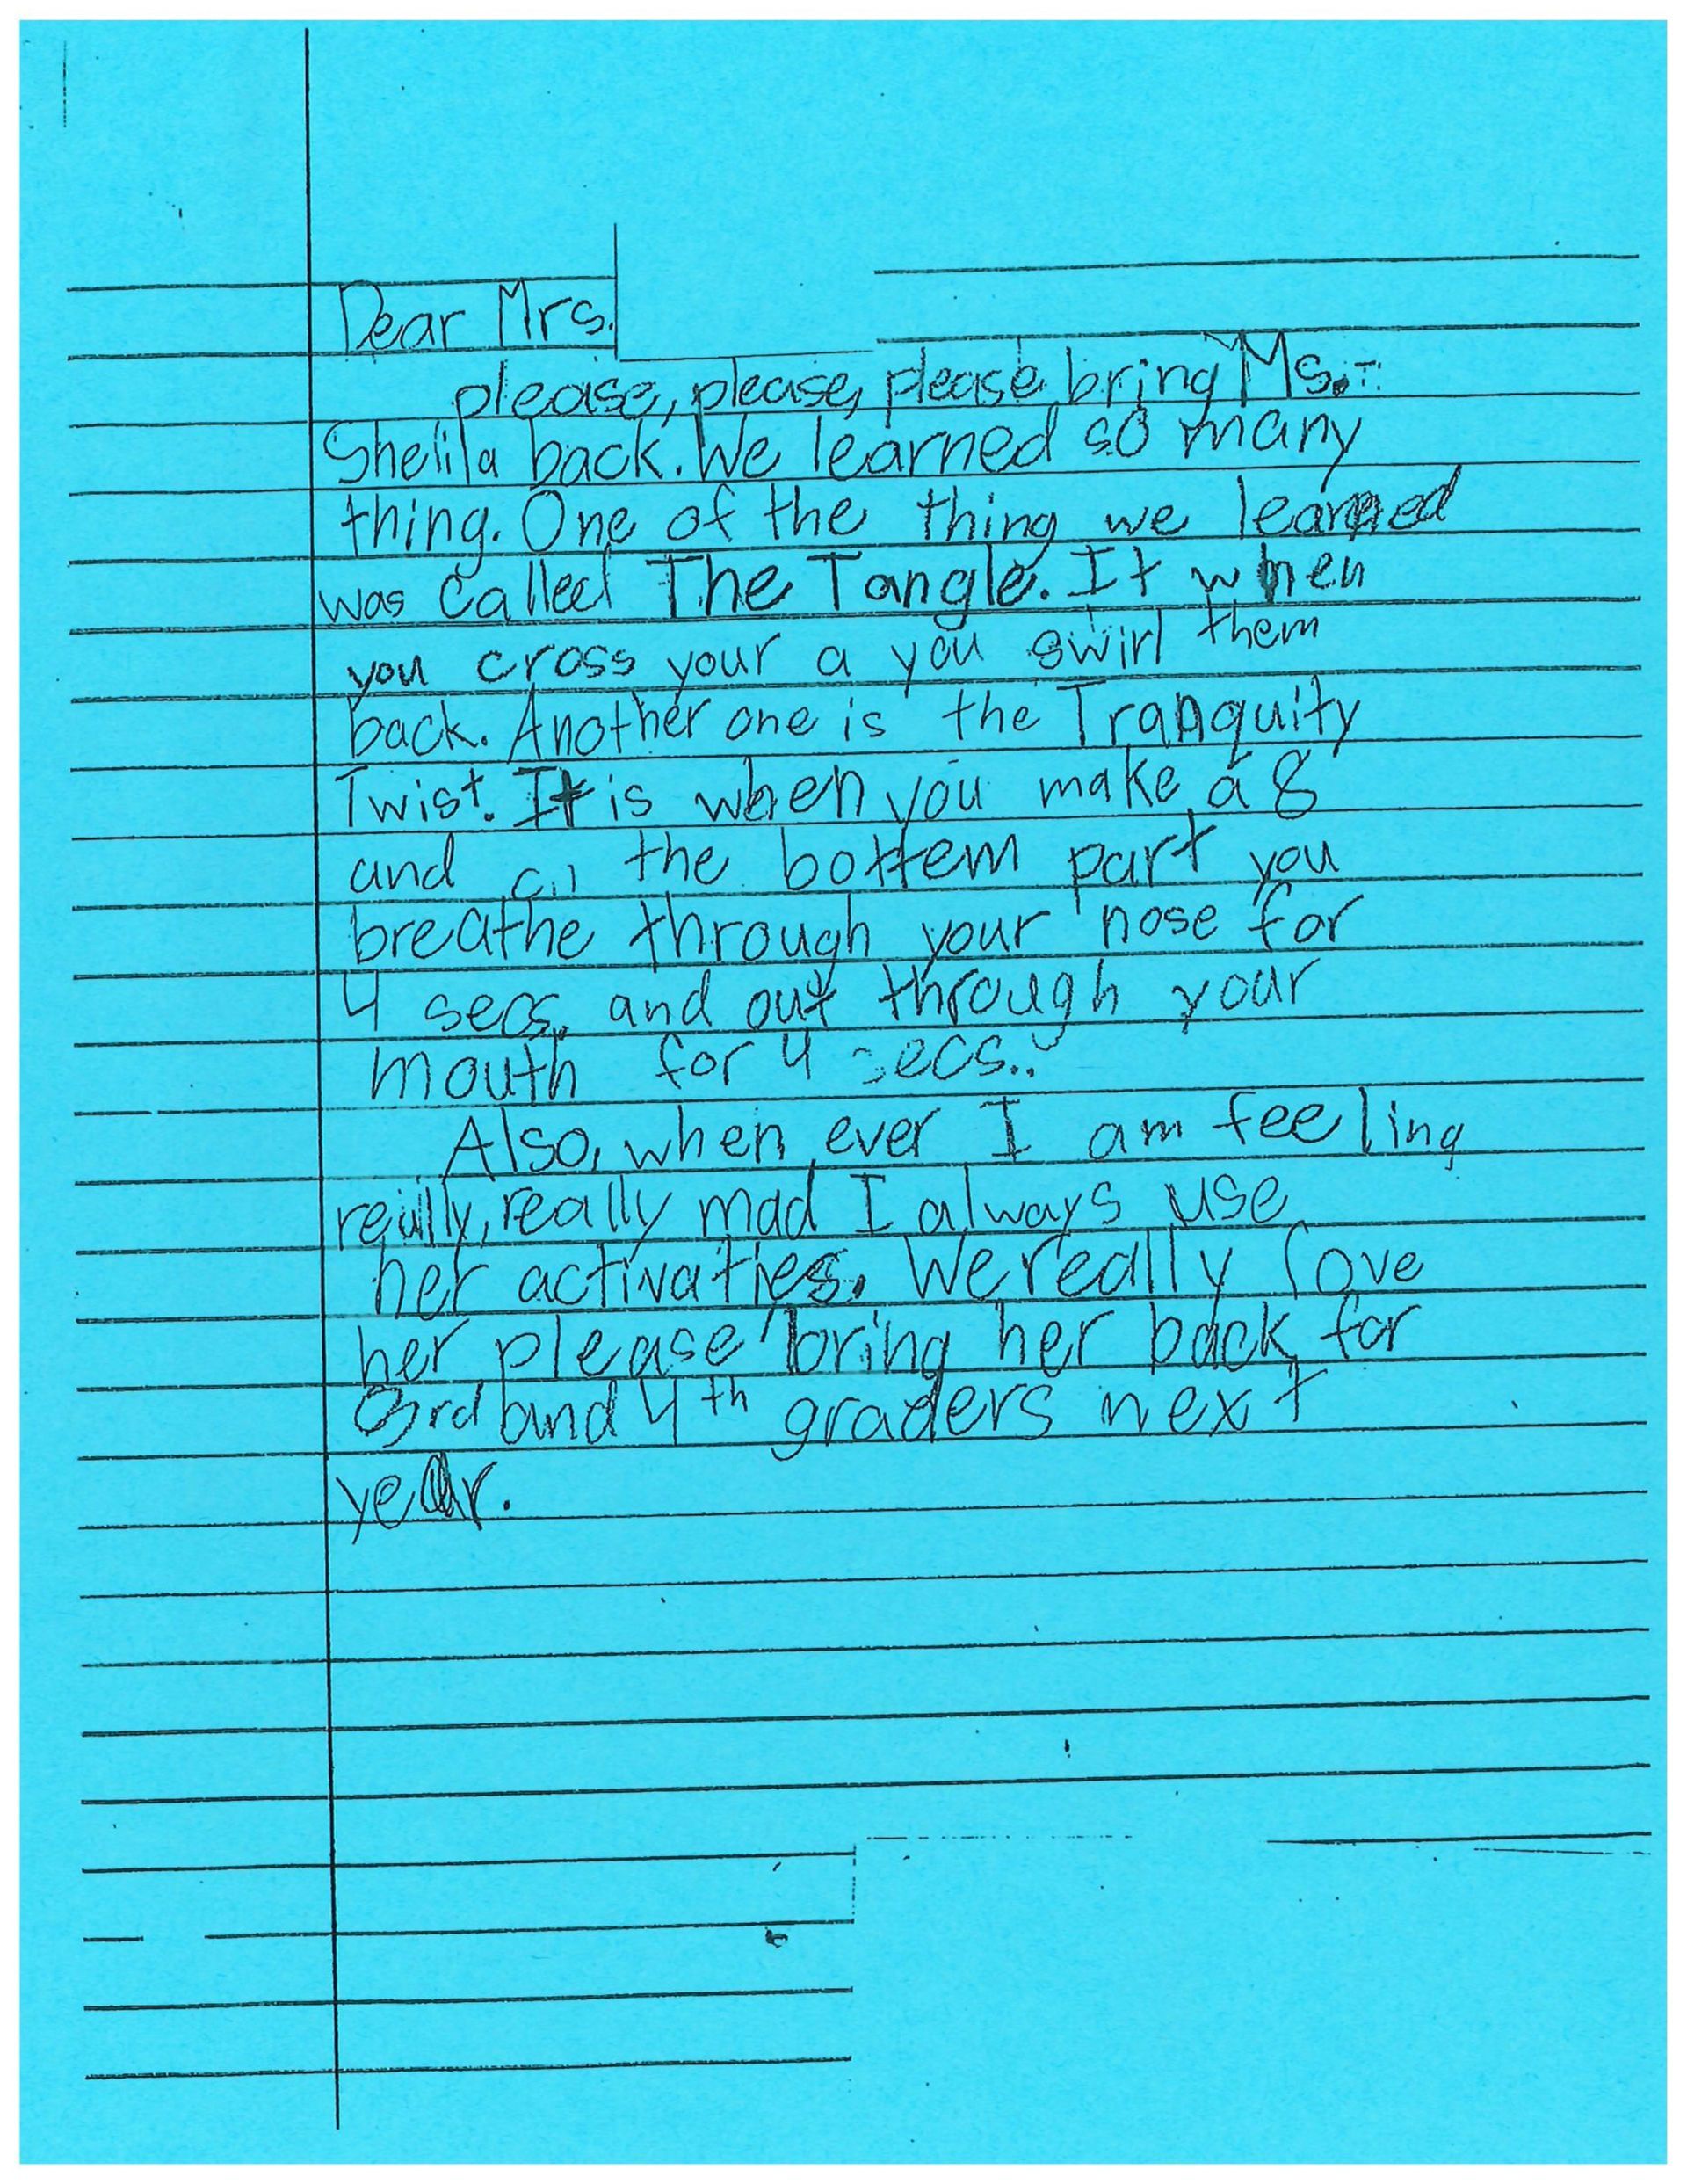 Dear Mrs.
please, please, please bring Ms.
Shelila back. We learned so many
thing. One of the thing we learned
was called The Tangle. It when
you cross your a you swirl them
back. Another one is the Tranquity
Twist. It is when you make a 8
and the bottem part you
breathe through your nose for
4 secs. and out through your
mouth for 4 secs..
Also, when ever I am feeling
really, really mad I always use
her activaties. We really love
her please bring her back for
3rd and 4th graders next
year.